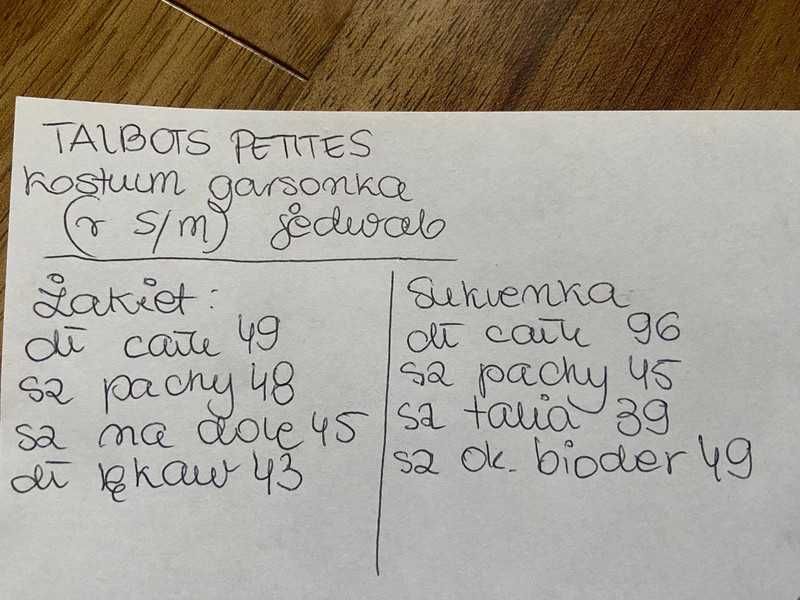 TALBOTS PETITES
kostium garsonka
(r S/M) jedwab
Żakiet:
dł całk 49
sz pachy 48
sz na dole 45
dł rękaw 43
Sukienka
dł całk 96
sz pachy 45
sz talia 39
sz ok. bioder 49